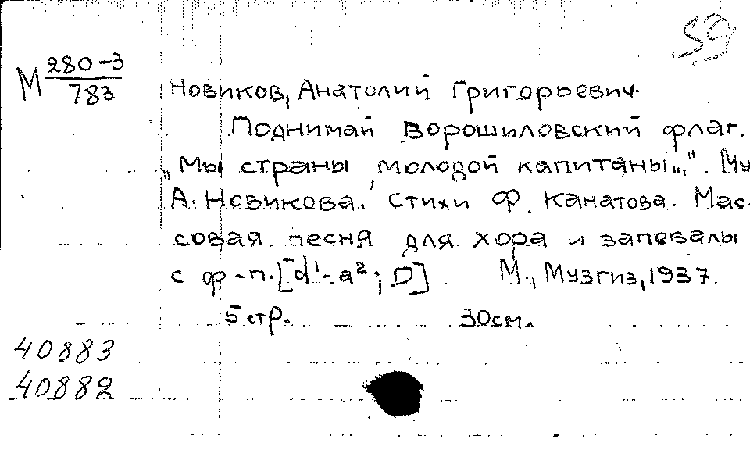 59
М 280-3/783
Новиков, Анатолий Григорьевич.
Поднимай Ворошиловский флаг.
"Мы страны молодой капитаны..." Му
А. Новикова. Стихи Ф. Канатова. Мас-
совая песня для хора и запевалы
с ф-п. [d¹-a²; D] М., Музгиз, 1937.
5 стр. 30см.
40883
40882